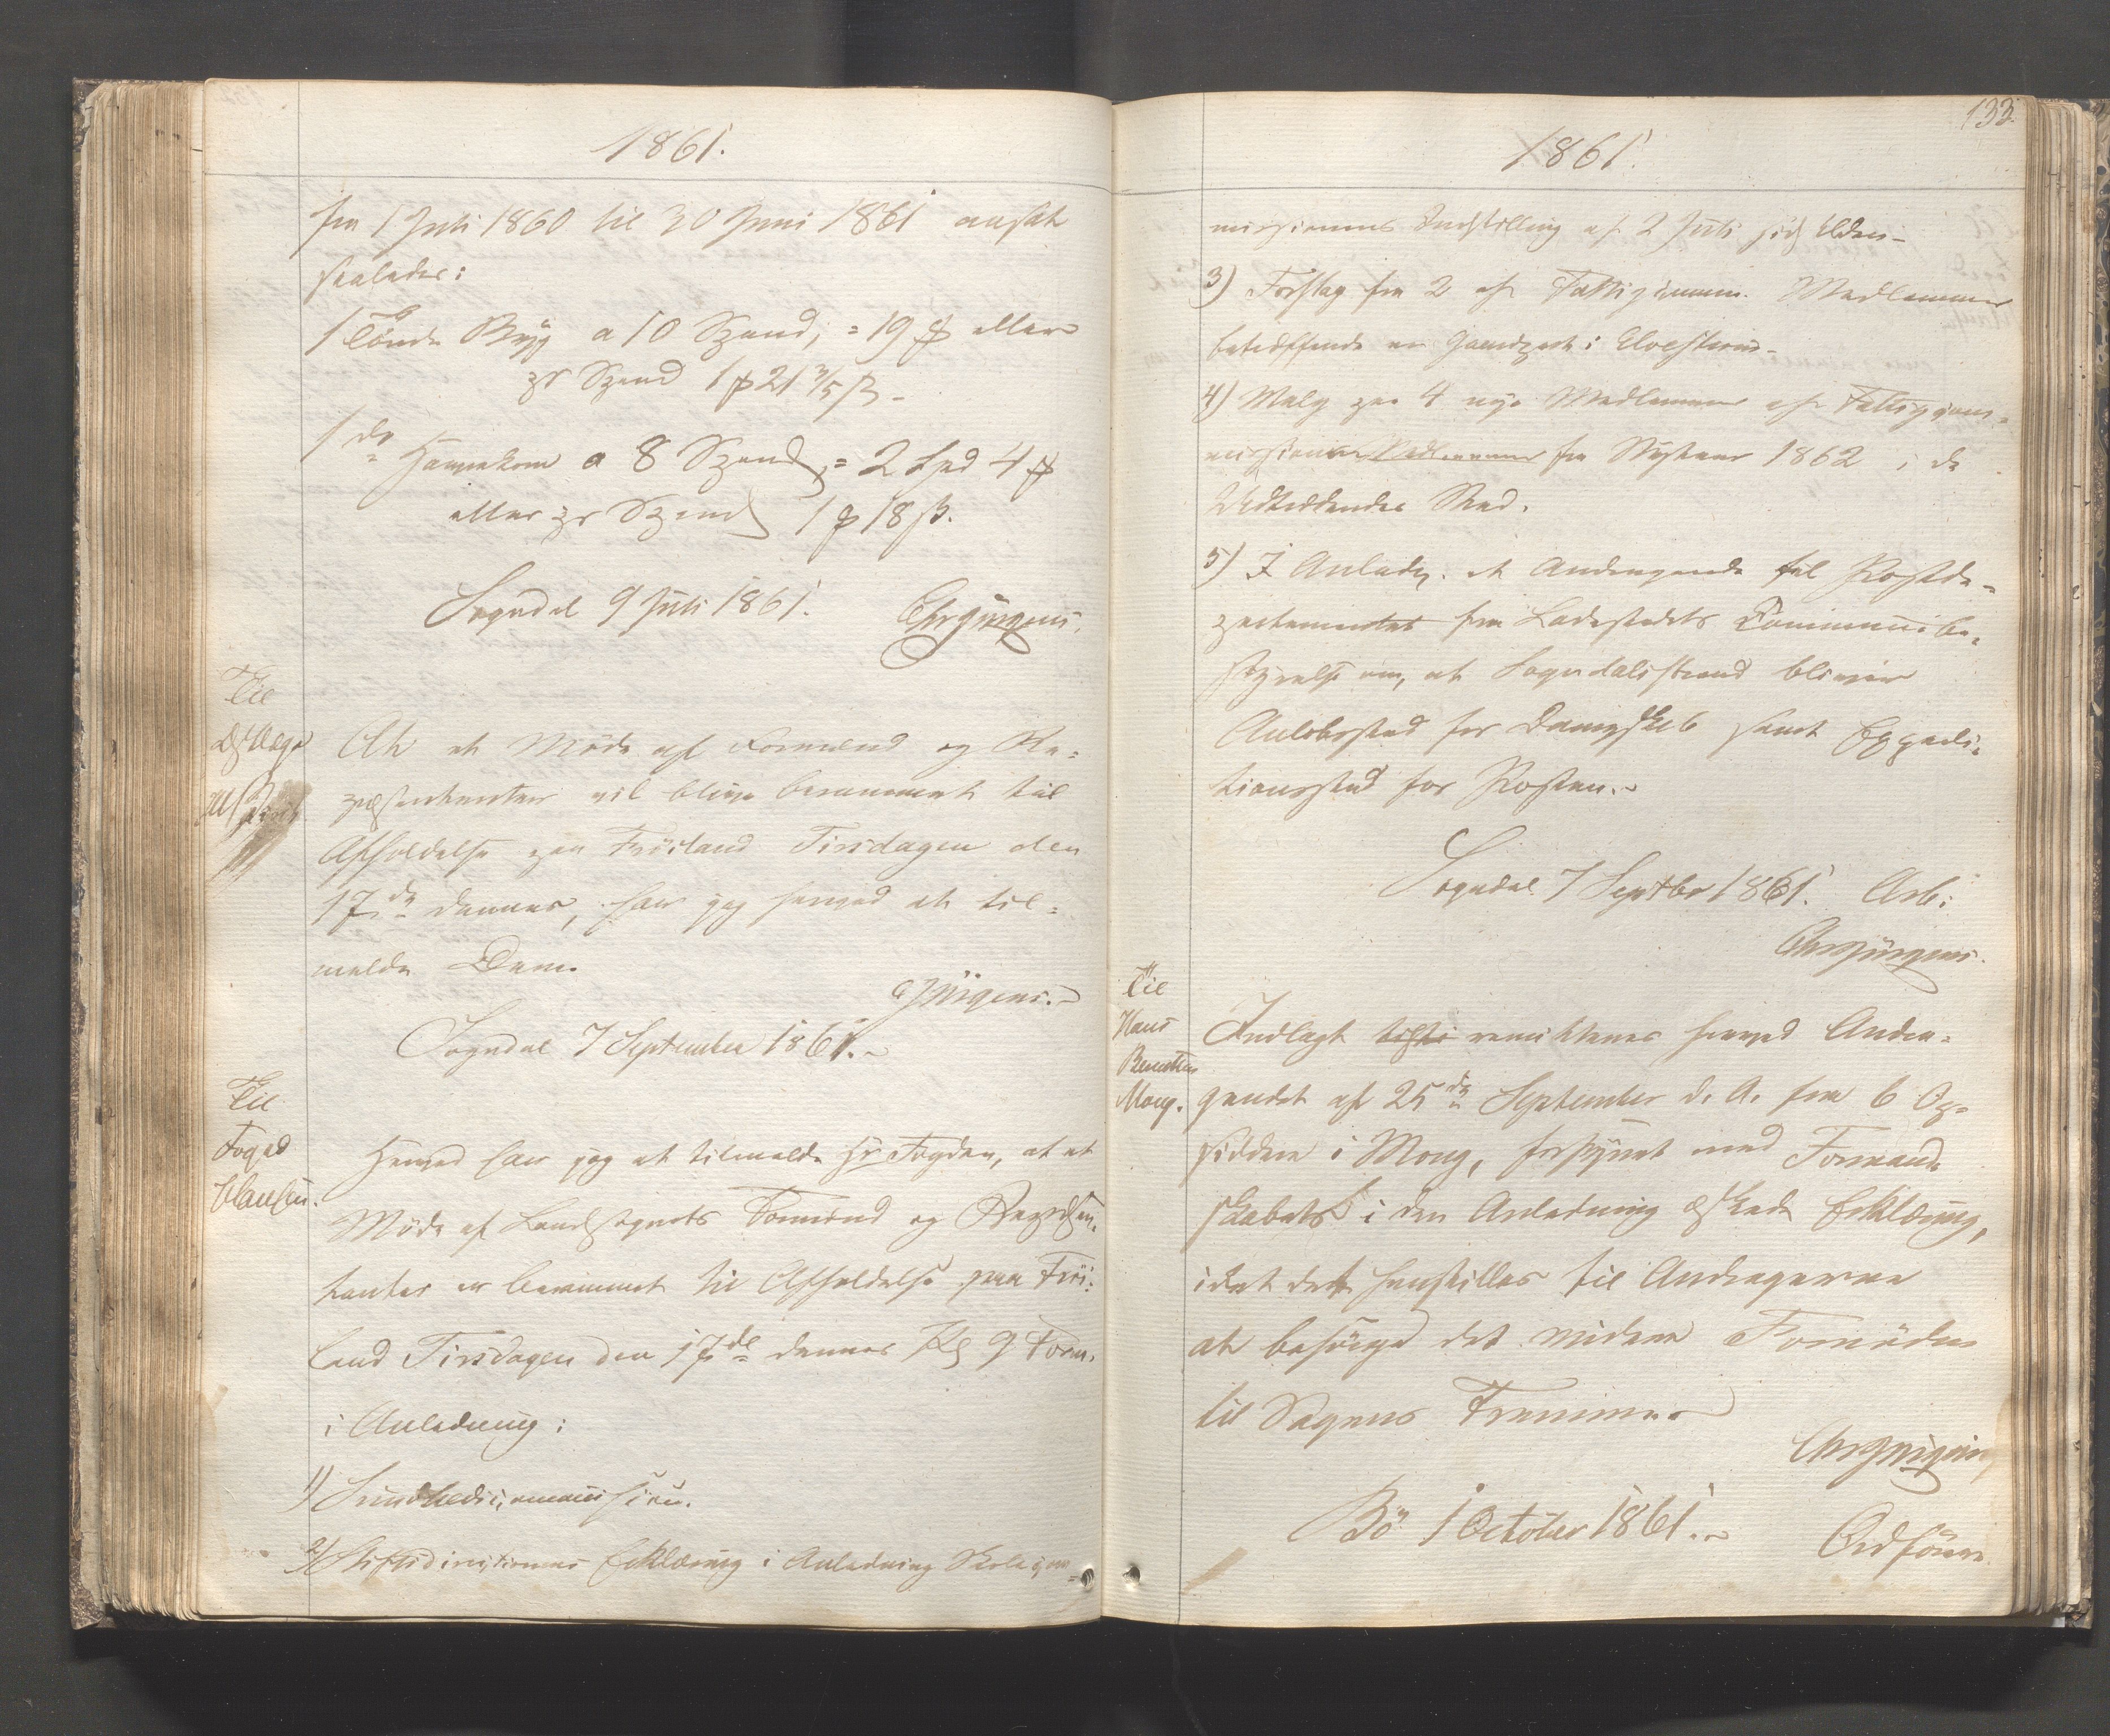 1861.
fra 1 Juli 1860 til 30 Juni 1861 ansat
saaledes:
1 Tönde Byg a 10 Spand, = 19 ₰ eller
pr Spand 1 ₰ 21 3/5 ß.
1 do Havrekorn a 8 Spand, = 2 Spd 4 ₰
eller pr Spand 1 ₰ 18 ß.
Sogndal 9 Juli 1861. Chr Jürgens.
Til
At et Möde af Formænd og Re-
præsentanter vil blive berammet til
Afholdelse paa Fröiland Tirsdagen den
17de dennes, har jeg herved at til-
melde Dem.
C Jürgens.
Sogndal 7 September 1861.
Til
Foged
Clausen.
Herved har jeg at tilmelde Hr Fogden, at et
Möde af Landsognets Formænd og Repræsen-
tanter er berammet til Afholdelse paa Fröi-
land Tirsdagen den 17de dennes Kl 9 Form.
i Anledning:
1) Sundhedscommission.
2) Stiftsdirectionens Erklæring i Anledning Skolecom-
133.
1861.
missionens Indstilling af 2 Juli sidstleden
3) Forslag fra 2 af Fattigcomm. Medlemmer
betræffende en
4) Valg paa 4 nye Medlemmer af Fattigcom-
missionen Medlemmer fra Nytaar 1862 i de
Udtrædendes Sted.
5) I Anledn. et Andragende til Postde-
partementet fra Ladestedets Communebe-
styrelse om, at Sogndalsstrand bliver
Anlöbssted for Dampskib samt Expedi-
tionssted for Posten.
Sogndal 7 Septbr 1861. Arb:
Chr Jürgens.
Til
Hans
Berentsen
Mong.
Indlagt remitteres herved Andra-
gendet af 25de September d. A. fra 6 Op-
siddere i Mong, forsynet med Formand-
skabets i den Anledning æskede Erklæring,
idet det henstilles til Andragerne
at besörge det videre Fornödne
til Sagens Fremme.
Chr Jürgens
Bö 1 October 1861. Ordförer.